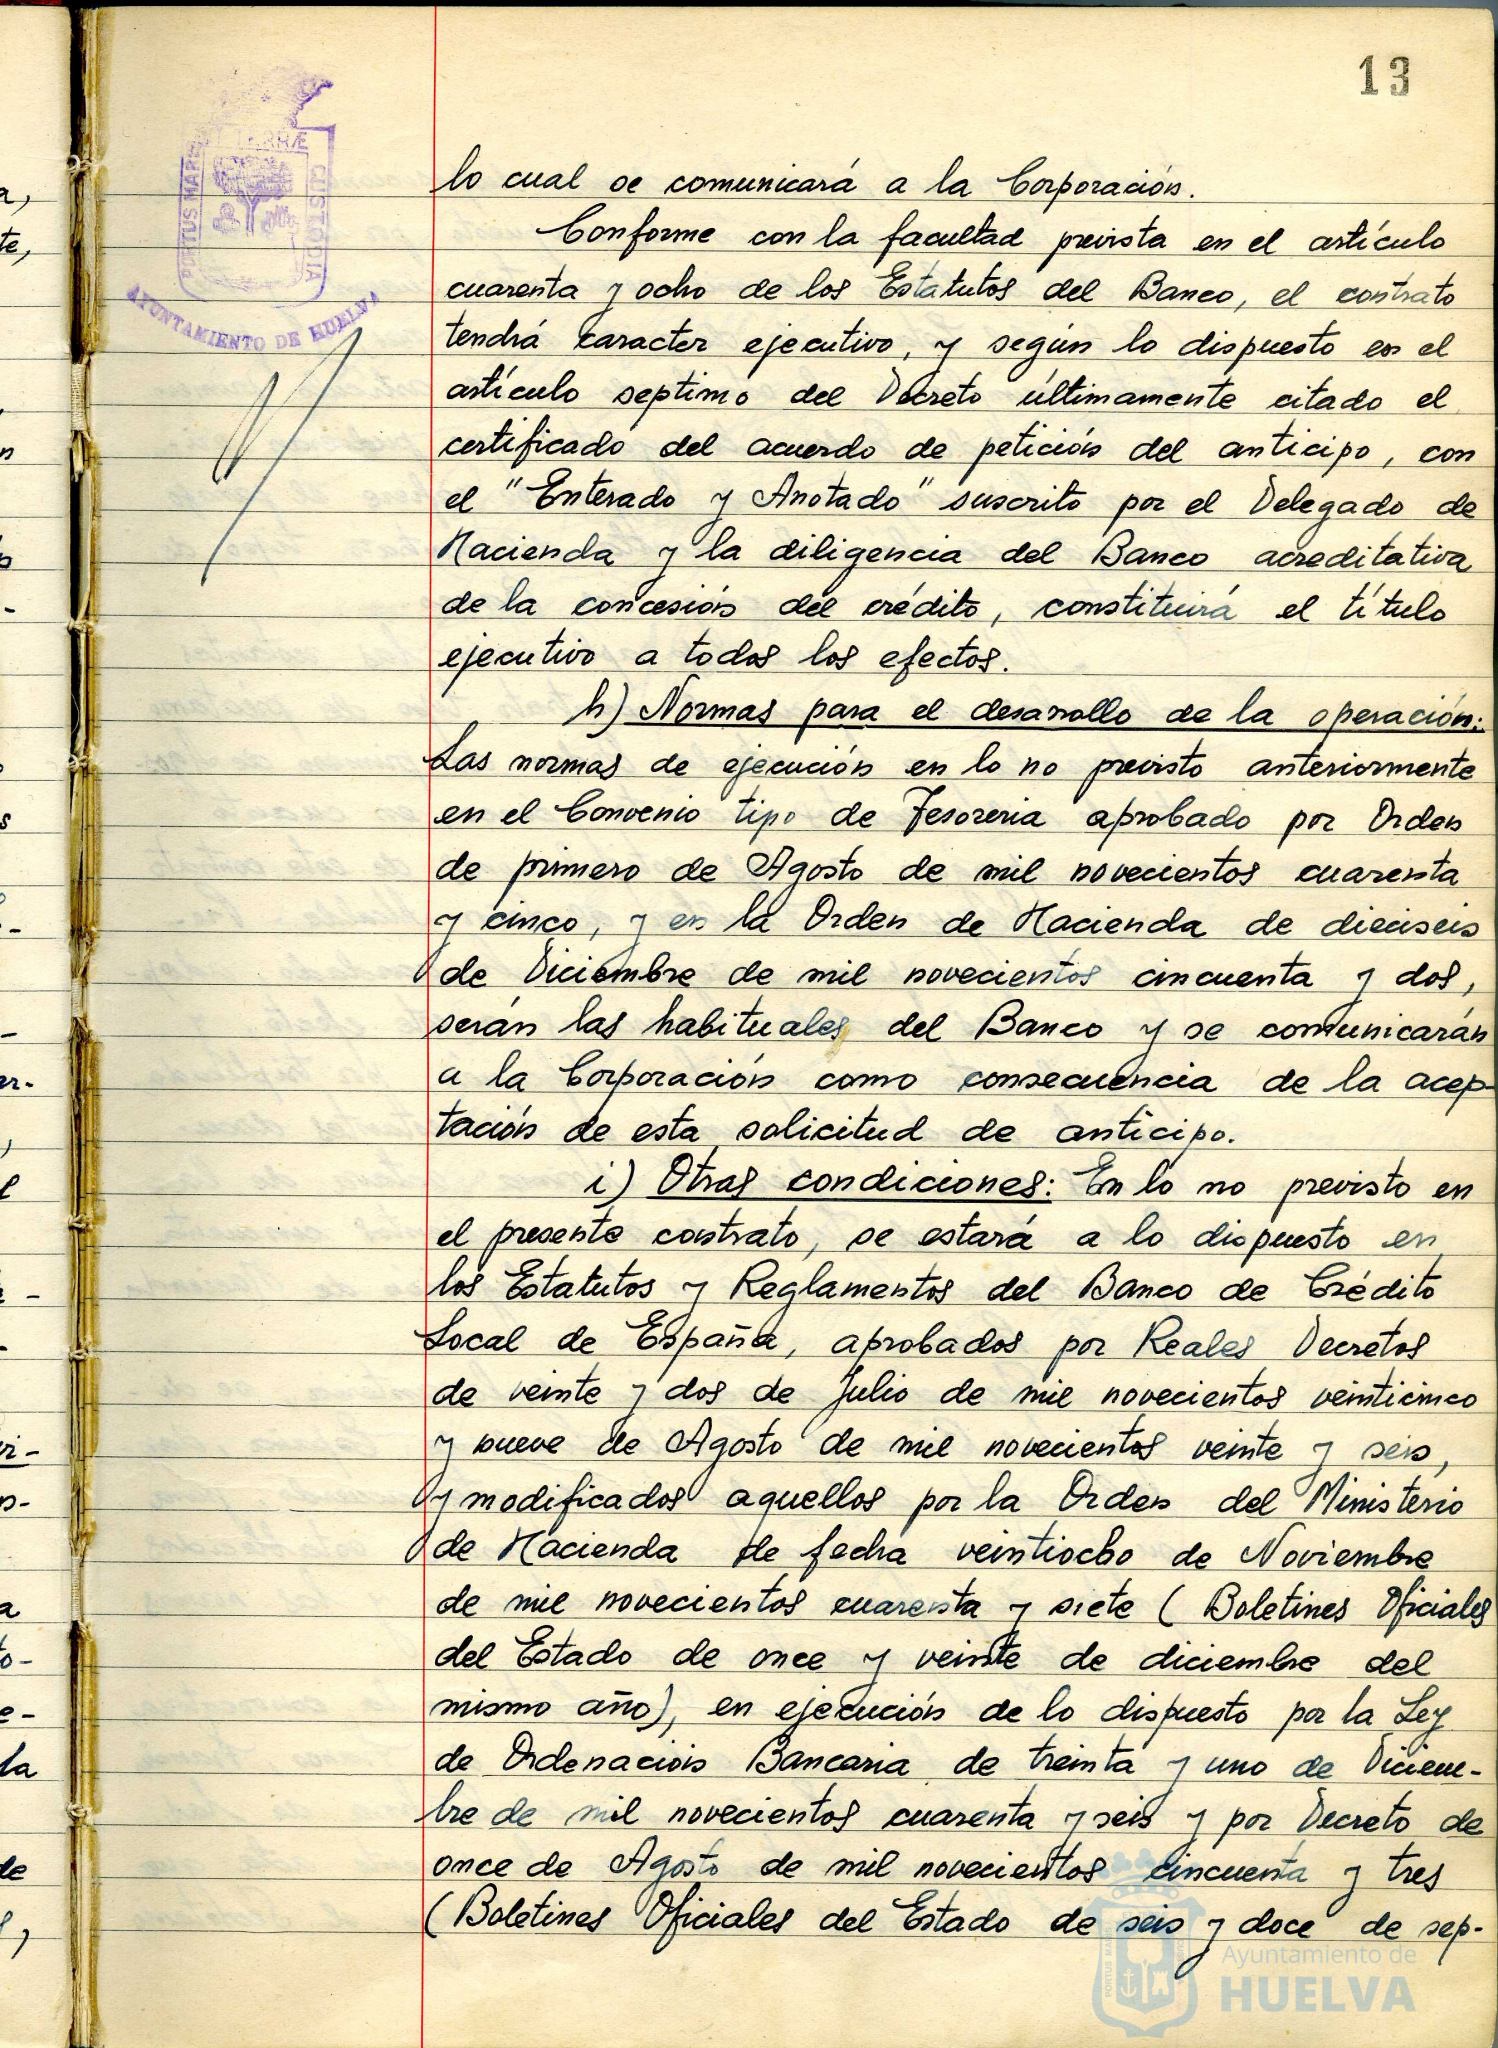 13
PORTUS MARIS
TERRÆ
CUSTODIA
AYUNTAMIENTO DE HUELVA
lo cual se comunicará a la Corporación.
Conforme con la facultad prevista en el artículo
cuarenta y ocho de los Estatutos del Banco, el contrato
tendrá caracter ejecutivo, y según lo dispuesto en el
artículo septimo del Decreto últimamente citado el
certificado del acuerdo de petición del anticipo, con
el "Enterado y Anotado" suscrito por el Delegado de
Hacienda y la diligencia del Banco acreditativa
de la concesión del crédito, constituirá el título
ejecutivo a todos los efectos.
h) Normas para el desarrollo de la operación:
Las normas de ejecución en lo no previsto anteriormente
en el Convenio tipo de Tesoreria aprobado por Orden
de primero de Agosto de mil novecientos cuarenta
y cinco, y en la Orden de Hacienda de dieciseis
de Diciembre de mil novecientos cincuenta y dos,
serán las habituales del Banco y se comunicarán
a la Corporación como consecuencia de la acep-
tación de esta solicitud de anticipo.
i) Otras condiciones: En lo no previsto en
el presente contrato, se estará a lo dispuesto en
los Estatutos y Reglamentos del Banco de Crédito
Local de España, aprobados por Reales Decretos
de veinte y dos de Julio de mil novecientos veinticinco
y nueve de Agosto de mil novecientos veinte y seis,
y modificados aquellos por la Orden del Ministerio
de Hacienda de fecha veintiocho de Noviembre
de mil novecientos cuarenta y siete (Boletines Oficiales
del Estado de once y veinte de diciembre del
mismo año), en ejecución de lo dispuesto por la Ley
de Ordenación Bancaria de treinta y uno de Diciem-
bre de mil novecientos cuarenta y seis y por Decreto de
once de Agosto de mil novecientos cincuenta y tres
(Boletines Oficiales del Estado de seis y doce de sep-
Ayuntamiento de
HUELVA